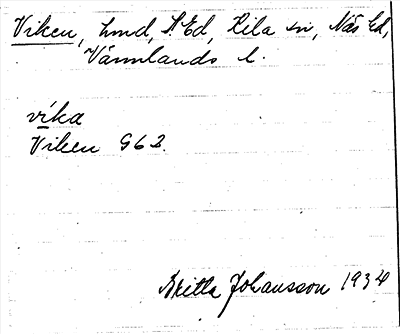 Viken, hmd, N Ed, Kila sn, Näs hd,
Värmlands l.
vika
Viken G62.
Britta Johansson 1934